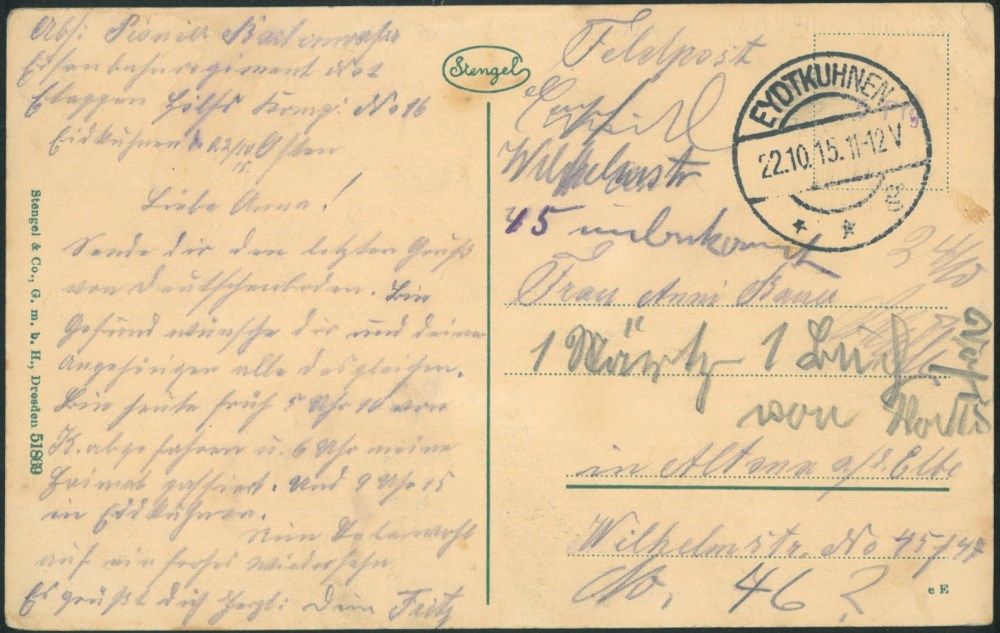 Abs: Pionier Bartimmafu
Eisenbahnregiment No 2
Etappen Hilfs Komp: No 16
Eidkuhnen 22/10 Osten
15.
Liebe Anna!
Sende dir den letzten Gruß
von deutschenboden. Bin
Gesund wünsche dir und deiner
Angehörigen alle desgleichen.
Bin heute früh 5 Uhr 10 von
K. abgefahren u. 6 Uhr meine
Heimat passiert. Und 9 Uhr 15
in Eidkuhnen.
Nun Lebewohl
auf ein frohes wiedersehn
Es grüßt dich Herzl: dein Fritz
Stengel & Co., G. m. b. H., Dresden 51869
Stengel
Feldpost
EYDTKUHNEN
22.10.15.11-12V
g
* *
Wilhelmstr
45 unbekannt
24/10
Frau Anni Bauer
1 März 1
von
in Altona a/d. Elbe
Wilhelmstr. No 45/47
No. 46 ?
e E